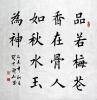 品若梅花
香在骨人
如秋水玉
為神